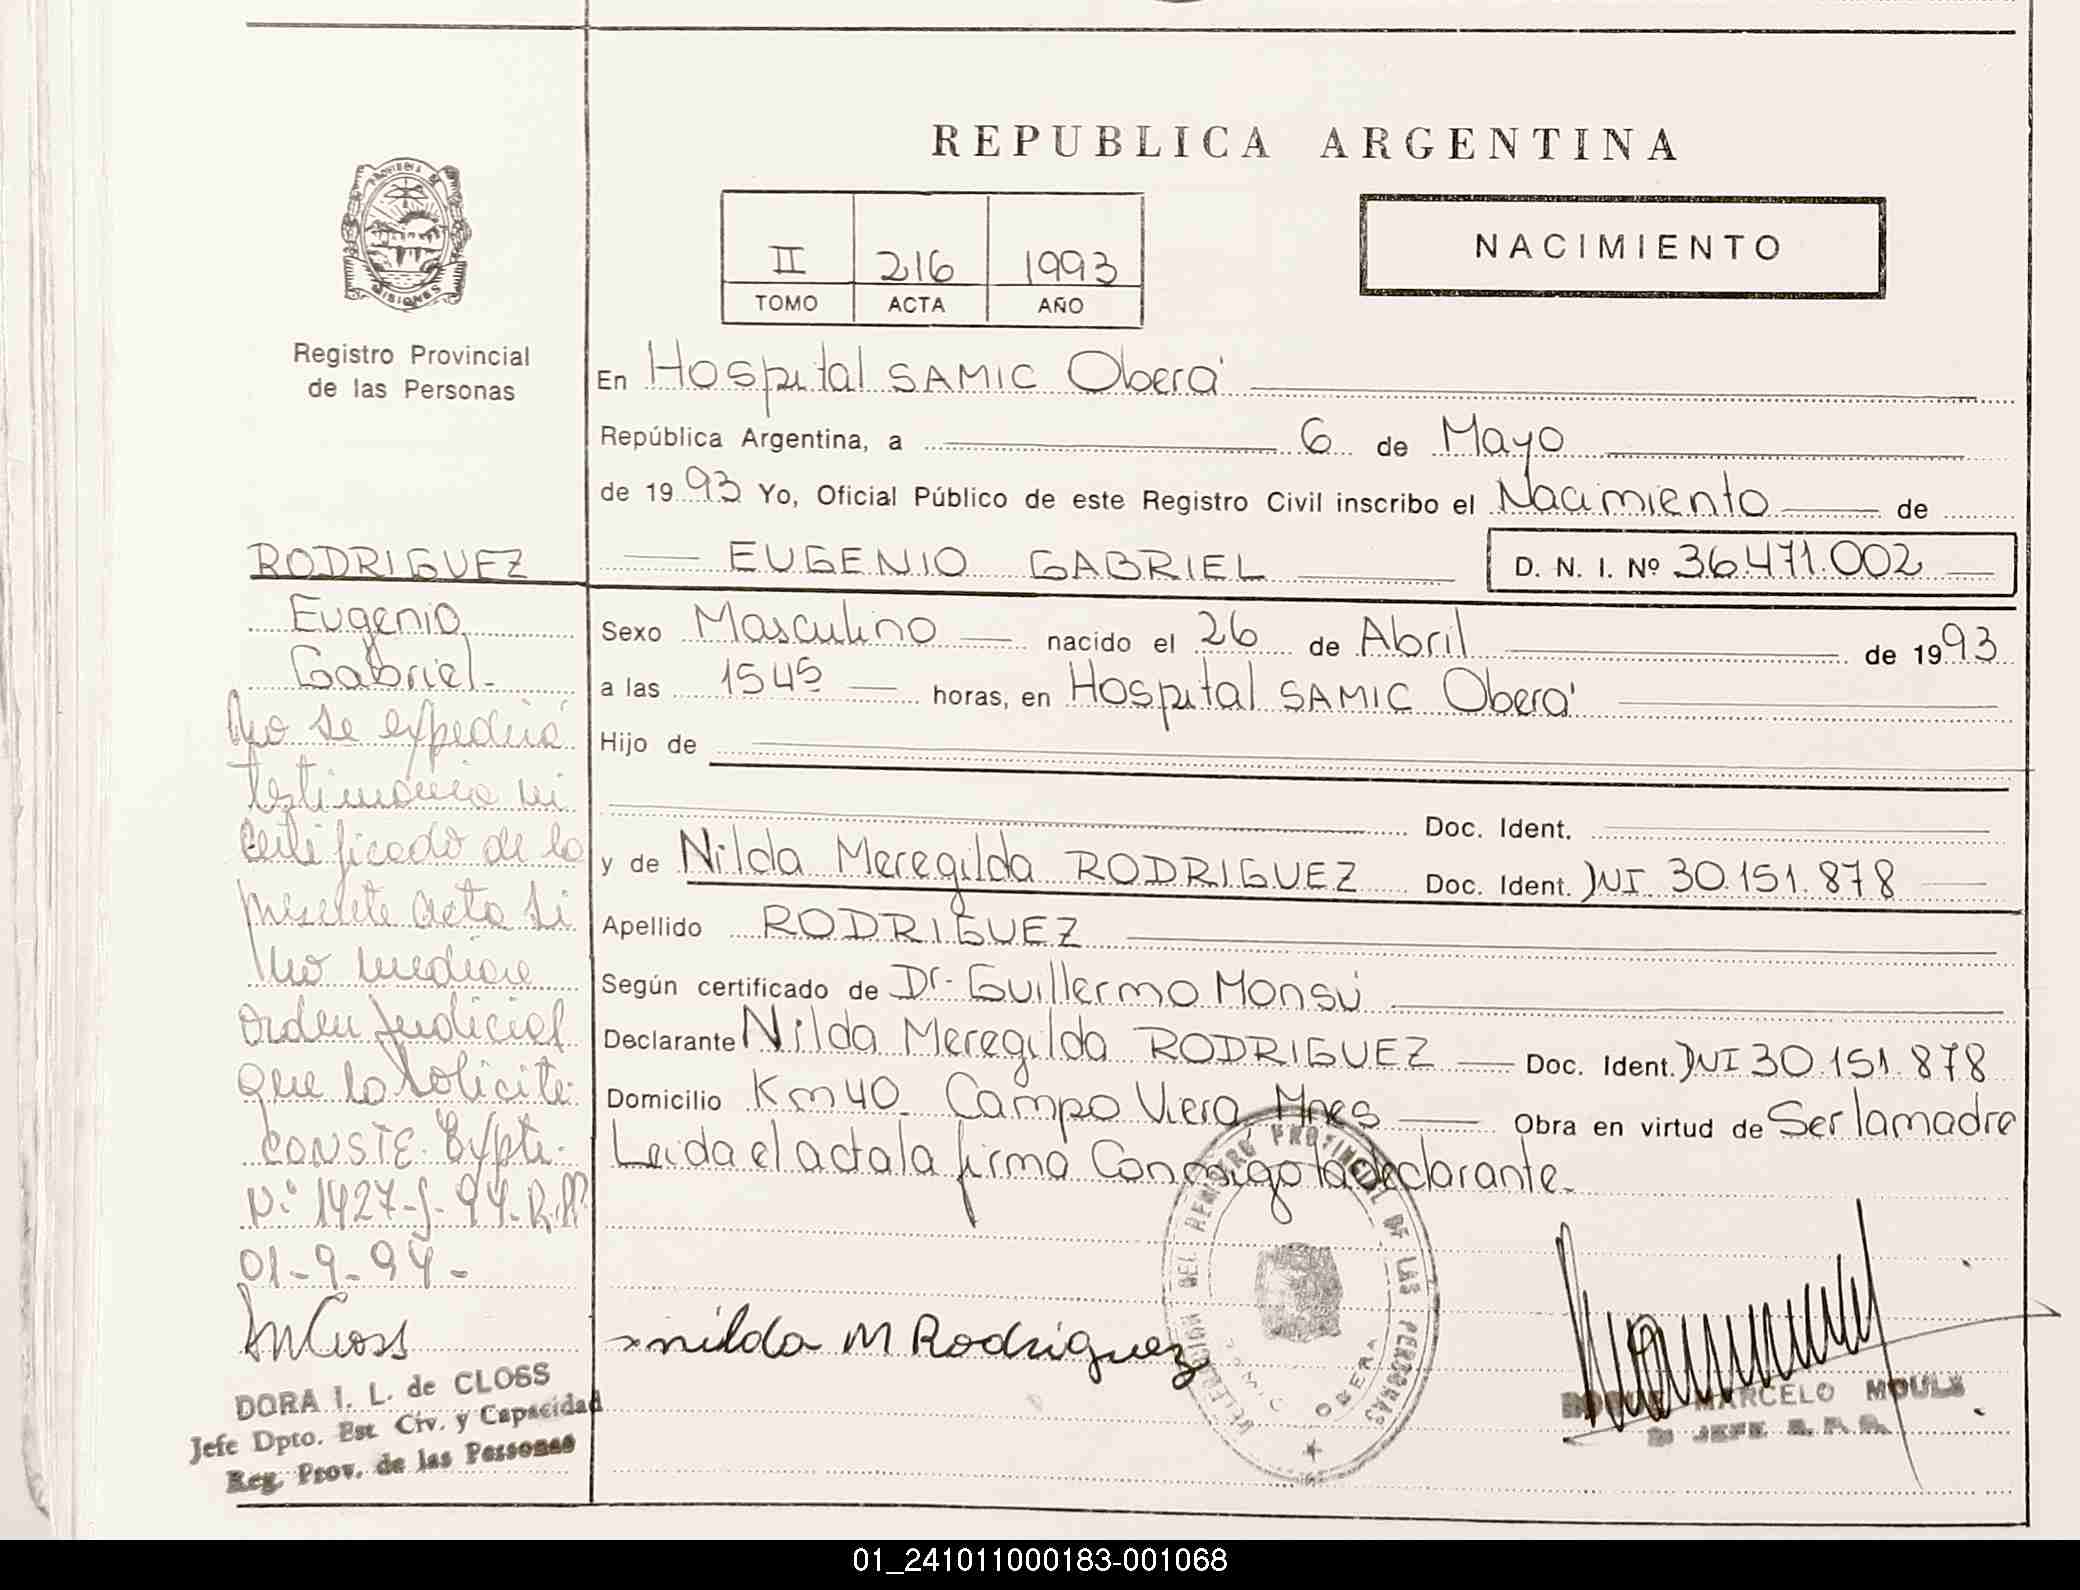 REPUBLICA ARGENTINA
PROVINCIA DE
MISIONES
Registro Provincial
de las Personas
II 216 1993
TOMO ACTA AÑO
NACIMIENTO
En Hospital SAMIC Oberá
República Argentina, a 6 de Mayo
de 1993 Yo, Oficial Público de este Registro Civil inscribo el Nacimiento de
EUGENIO GABRIEL D. N. I. Nº 36.471.002
Sexo Masculino nacido el 26 de Abril de 1993
a las 1545 horas, en Hospital SAMIC Oberá
Hijo de
Doc. Ident.
y de Nilda Meregilda RODRIGUEZ Doc. Ident. DNI 30.151.878
Apellido RODRIGUEZ
Según certificado de Dr. Guillermo Monsú
Declarante Nilda Meregilda RODRIGUEZ Doc. Ident. DNI 30.151.878
Domicilio Km 40 Campo Viera, Mnes Obra en virtud de Ser la madre
Leida el acta la firma Conmigo la declarante.
nilda M Rodriguez
DELEGACION DEL REGISTRO PROVINCIAL DE LAS PERSONAS
OBERA
MARCELO
JEFE R. P. P.
RODRIGUEZ
Eugenio
Gabriel.
No se expedirá
testimonio ni
certificado de la
presente acta si
no mediare
orden judicial
que lo solicite.
CONSTE. Expte.
Nº 1427-J-94-R.P.
01-9-94-
DORA I. L. de CLOSS
Jefe Dpto. Est. Civ. y Capacidad
Reg. Prov. de las Personas
01_241011000183-001068